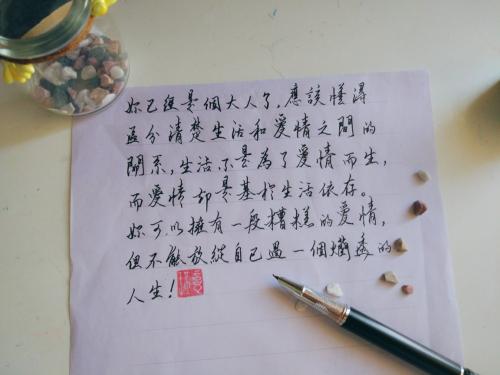 妳已經是個大人了，應該懂得
區分清楚生活和愛情之間的
關系，生活不是為了愛情而生，
而愛情却是基於生活依存。
妳可以擁有一段糟糕的愛情，
但不能放縱自己過一個爛透的
人生！